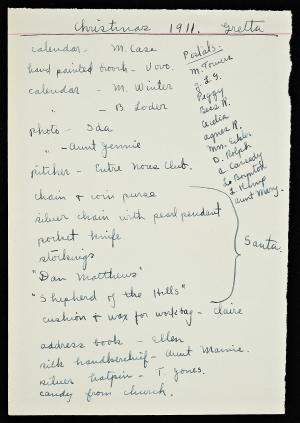 Christmas 1911. Gretta
calendar - M. Case
hand painted brooch - Vovo.
calendar - M. Winter
" - B. Loder
photo - Ida
" - Aunt Jennie
pitcher - Entre Nous Club.
chain & coin purse
silver chain with pearl pendant
pocket knife
stockings
"Dan Matthews"
"Shepherd of the Hills"
Santa.
cushion & wax for workbag - Claire
address book - Ellen
silk handkerchief - Aunt Mamie.
silver hatpin - T. Jones.
candy from church.
Postals:
M. Towers
J. L. G.
Peggy
Bess R.
Cecilia
Agnes R.
Mrs.
D. Rolph
a Cassedy
L. Boynton
L. Kemp
Aunt Mary.